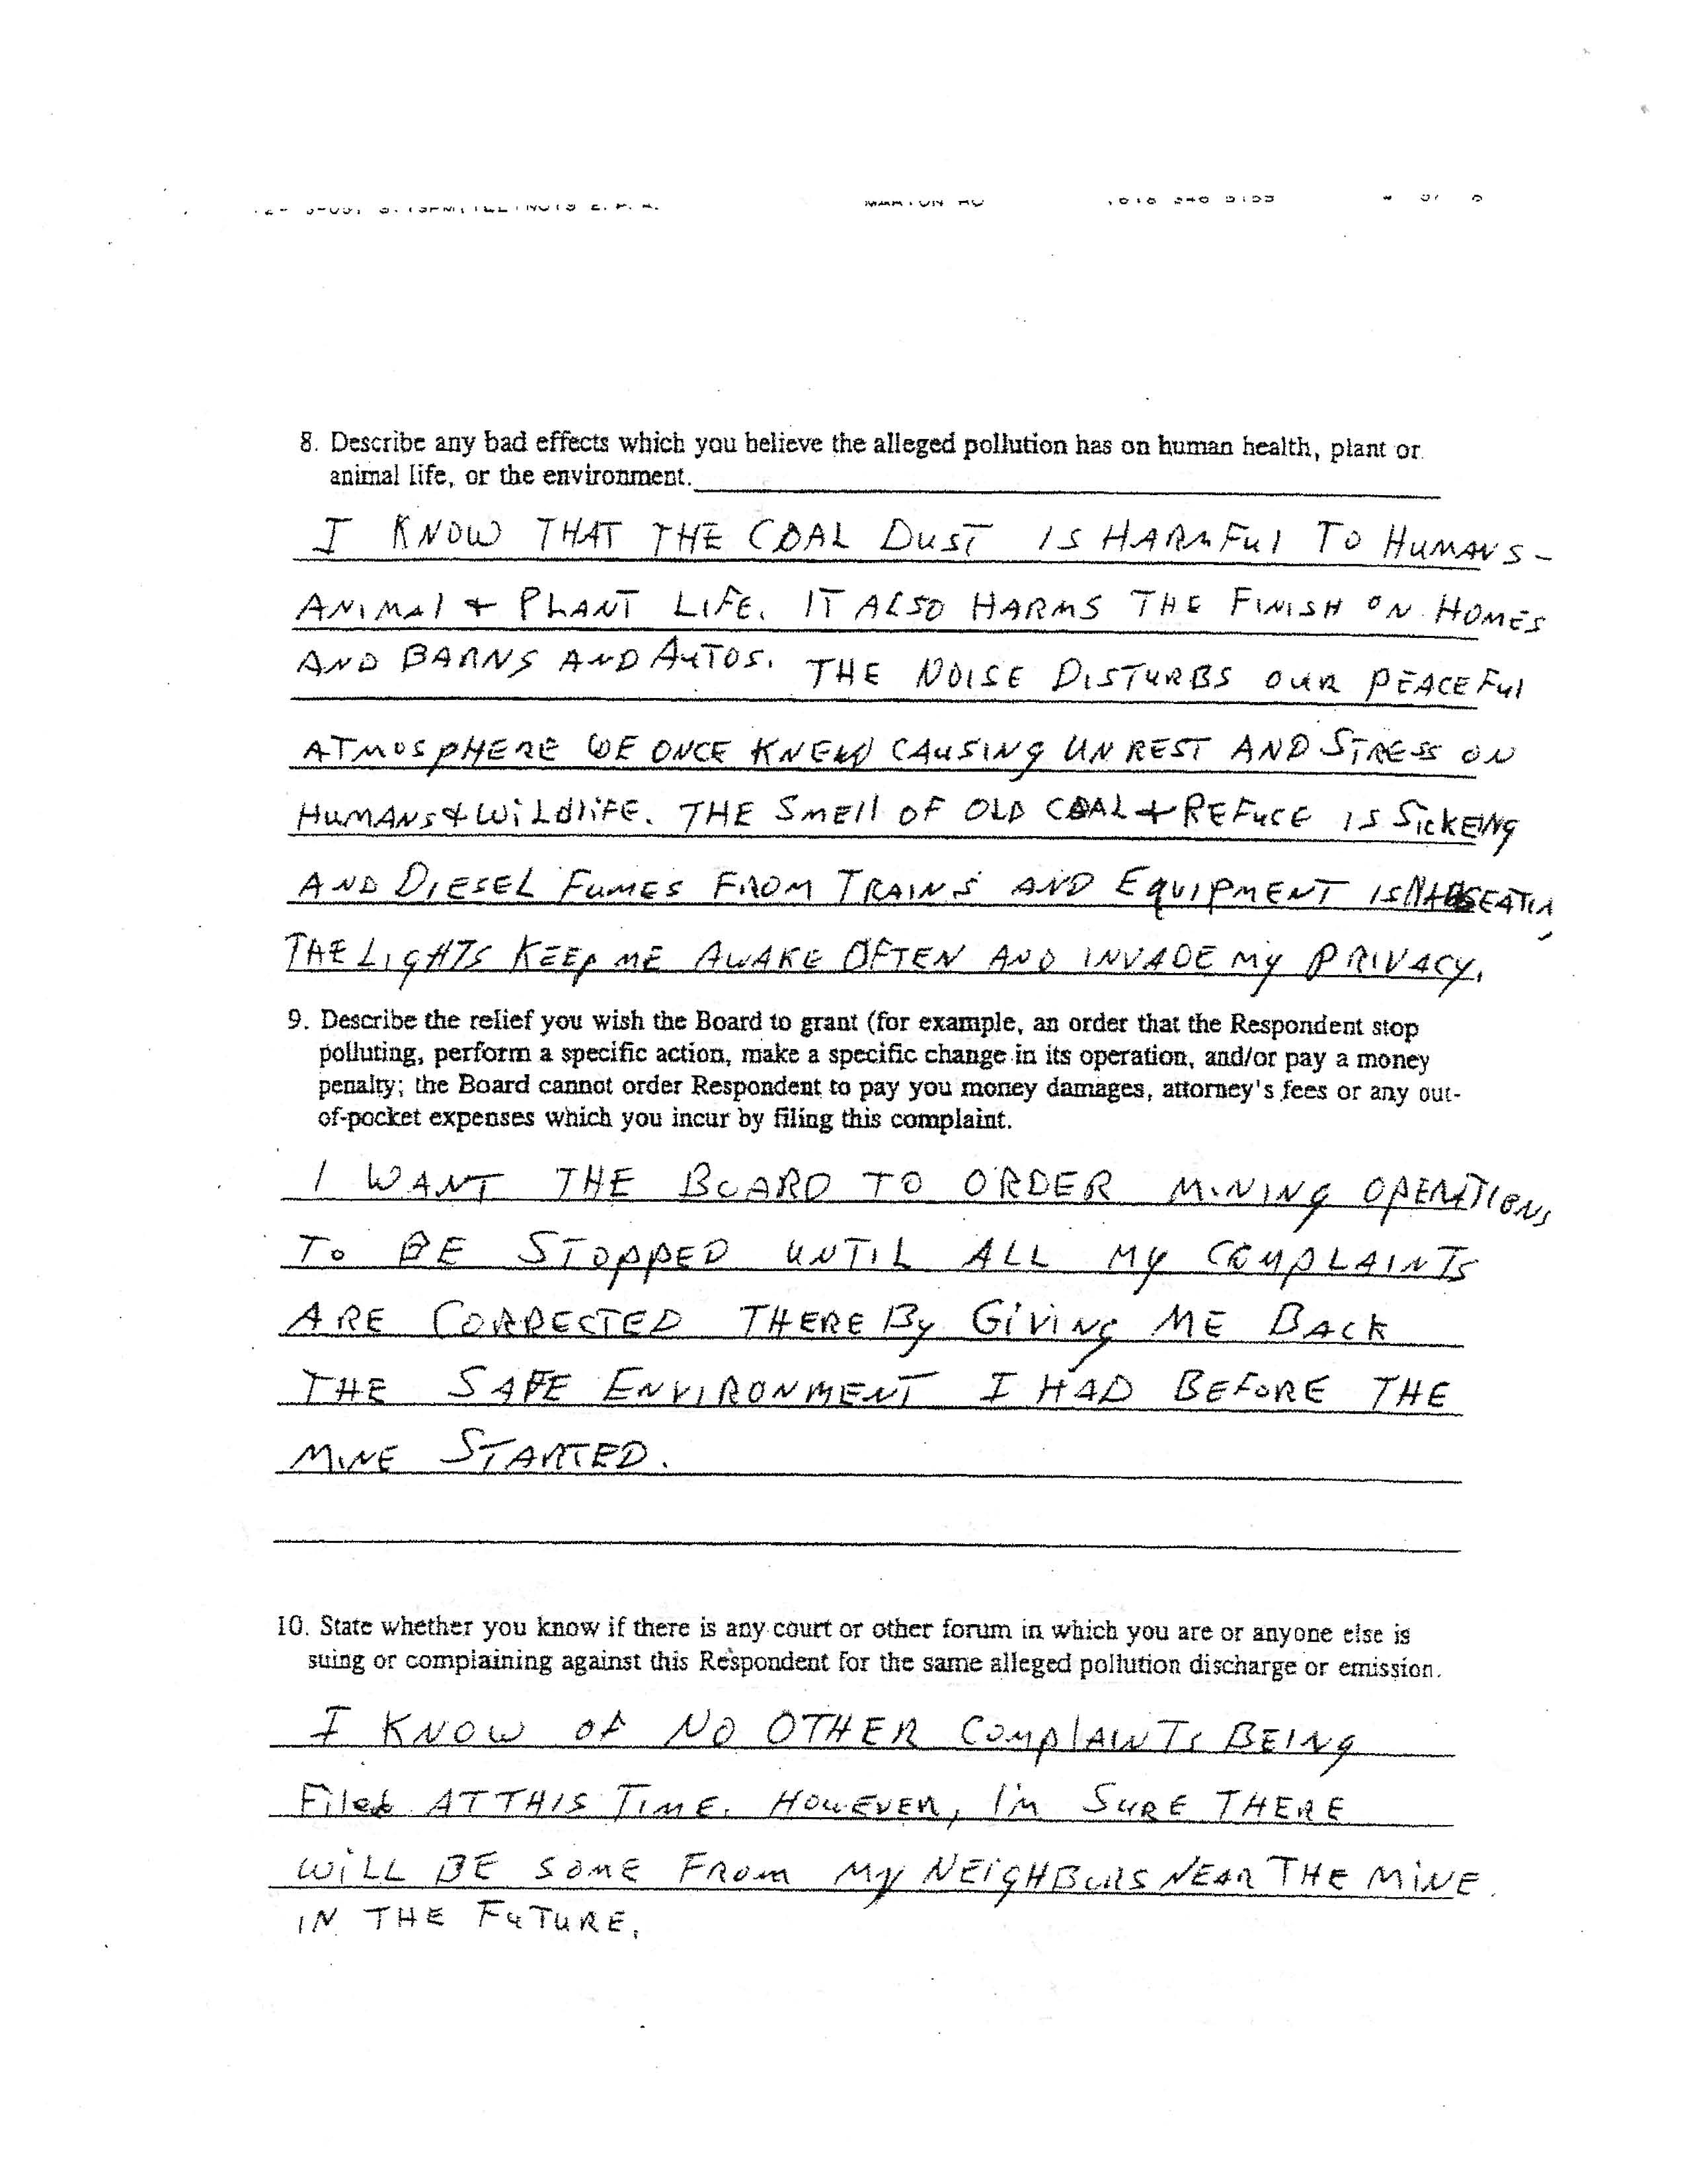 8. Describe any bad effects which you believe the alleged pollution has on human health, plant or
animal life, or the environment.
I KNOW THAT THE COAL DUST IS HARMFUL TO HUMANS-
ANIMAL + PLANT LIFE. IT ALSO HARMS THE FINISH ON HOMES
AND BARNS AND AUTOS. THE NOISE DISTURBS OUR PEACEFUL
ATMOSPHERE WE ONCE KNEW CAUSING UNREST AND STRESS ON
HUMANS & WILDLIFE. THE SMELL OF OLD COAL + REFUCE IS SICKEING
AND DIESEL FUMES FROM TRAINS AND EQUIPMENT IS
THE LIGHTS KEEP ME AWAKE OFTEN AND INVADE MY PRIVACY.
9. Describe the relief you wish the Board to grant (for example, an order that the Respondent stop
polluting, perform a specific action, make a specific change in its operation, and/or pay a money
penalty; the Board cannot order Respondent to pay you money damages, attorney's fees or any out-
of-pocket expenses which you incur by filing this complaint.
I WANT THE BOARD TO ORDER MINING OPERATIONS
TO BE STOPPED UNTIL ALL MY COMPLAINTS
ARE CORRECTED THERE BY GIVING ME BACK
THE SAFE ENVIRONMENT I HAD BEFORE THE
MINE STARTED.
10. State whether you know if there is any court or other forum in which you are or anyone else is
suing or complaining against this Respondent for the same alleged pollution discharge or emission.
I KNOW OF NO OTHER COMPLAINTS BEING
FILED AT THIS TIME. HOWEVER, I'M SURE THERE
WILL BE SOME FROM MY NEIGHBORS NEAR THE MINE
IN THE FUTURE.